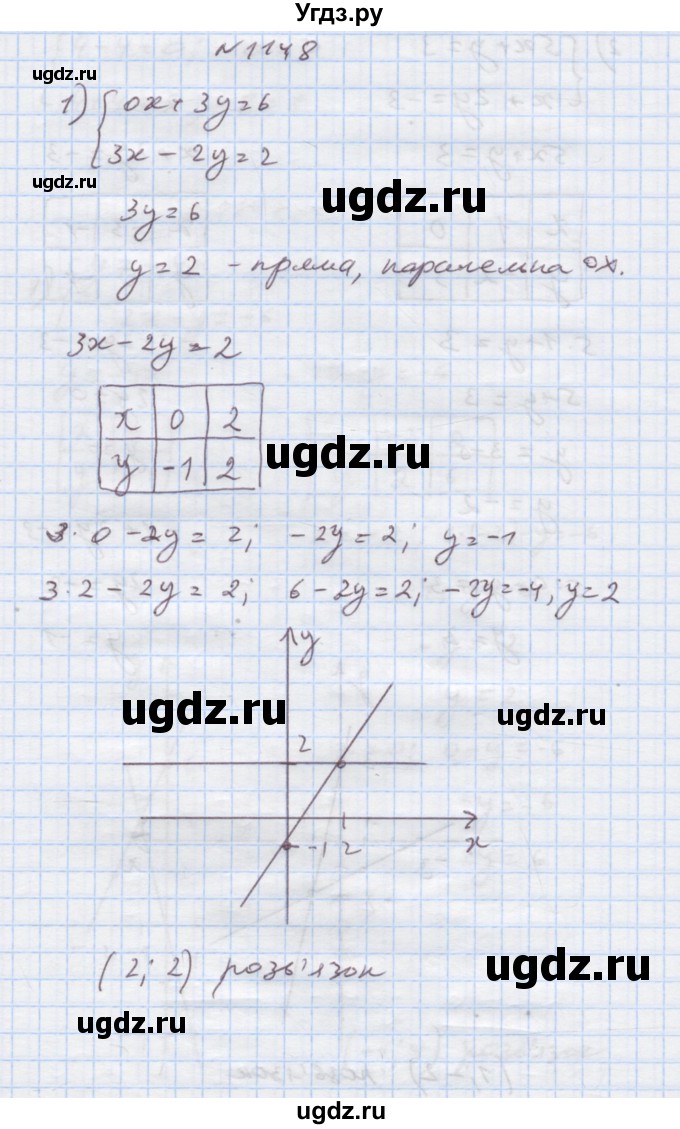 Угдз.ру
ugdz.ru
№1148
1) { 0x + 3y = 6
3x - 2y = 2
ugdz.ru
ugdz.ru
3y = 6
y = 2 - пряма, паралельна ox.
3x - 2y = 2
x | 0 | 2
y | -1 | 2
ugdz.ru
3·0 - 2y = 2; -2y = 2; y = -1
3·2 - 2y = 2; 6 - 2y = 2; -2y = -4; y = 2
y
ugdz.ru
ugdz.ru
2
-1 2 x
(2; 2) розв'язок
ugdz.ru
ugdz.ru
ugdz.ru